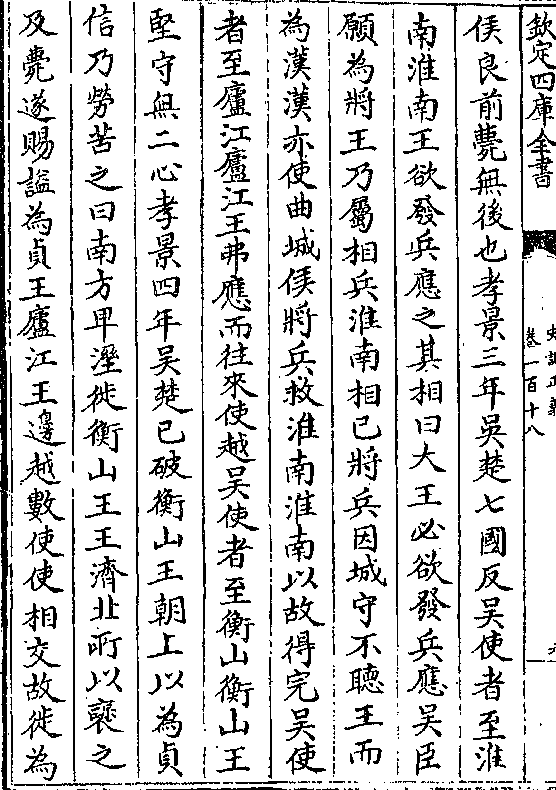 欽定四庫全書
史記正義
卷一百十八
侯良前薨無後也孝景三年吳楚七國反吳使者至淮
南淮南王欲發兵應之其相曰大王必欲發兵應吳臣
願為將王乃屬相兵淮南相已將兵因城守不聽王而
為漢漢亦使曲城侯將兵救淮南淮南以故得完吳使
者至廬江廬江王弗應而往來使越吳使者至衡山衡山王
堅守無二心孝景四年吳楚已破衡山王朝上以為貞
信乃勞苦之曰南方卑溼徙衡山王王濟北所以褒之
及薨遂賜諡為貞王廬江王邊越數使使相交故徙為